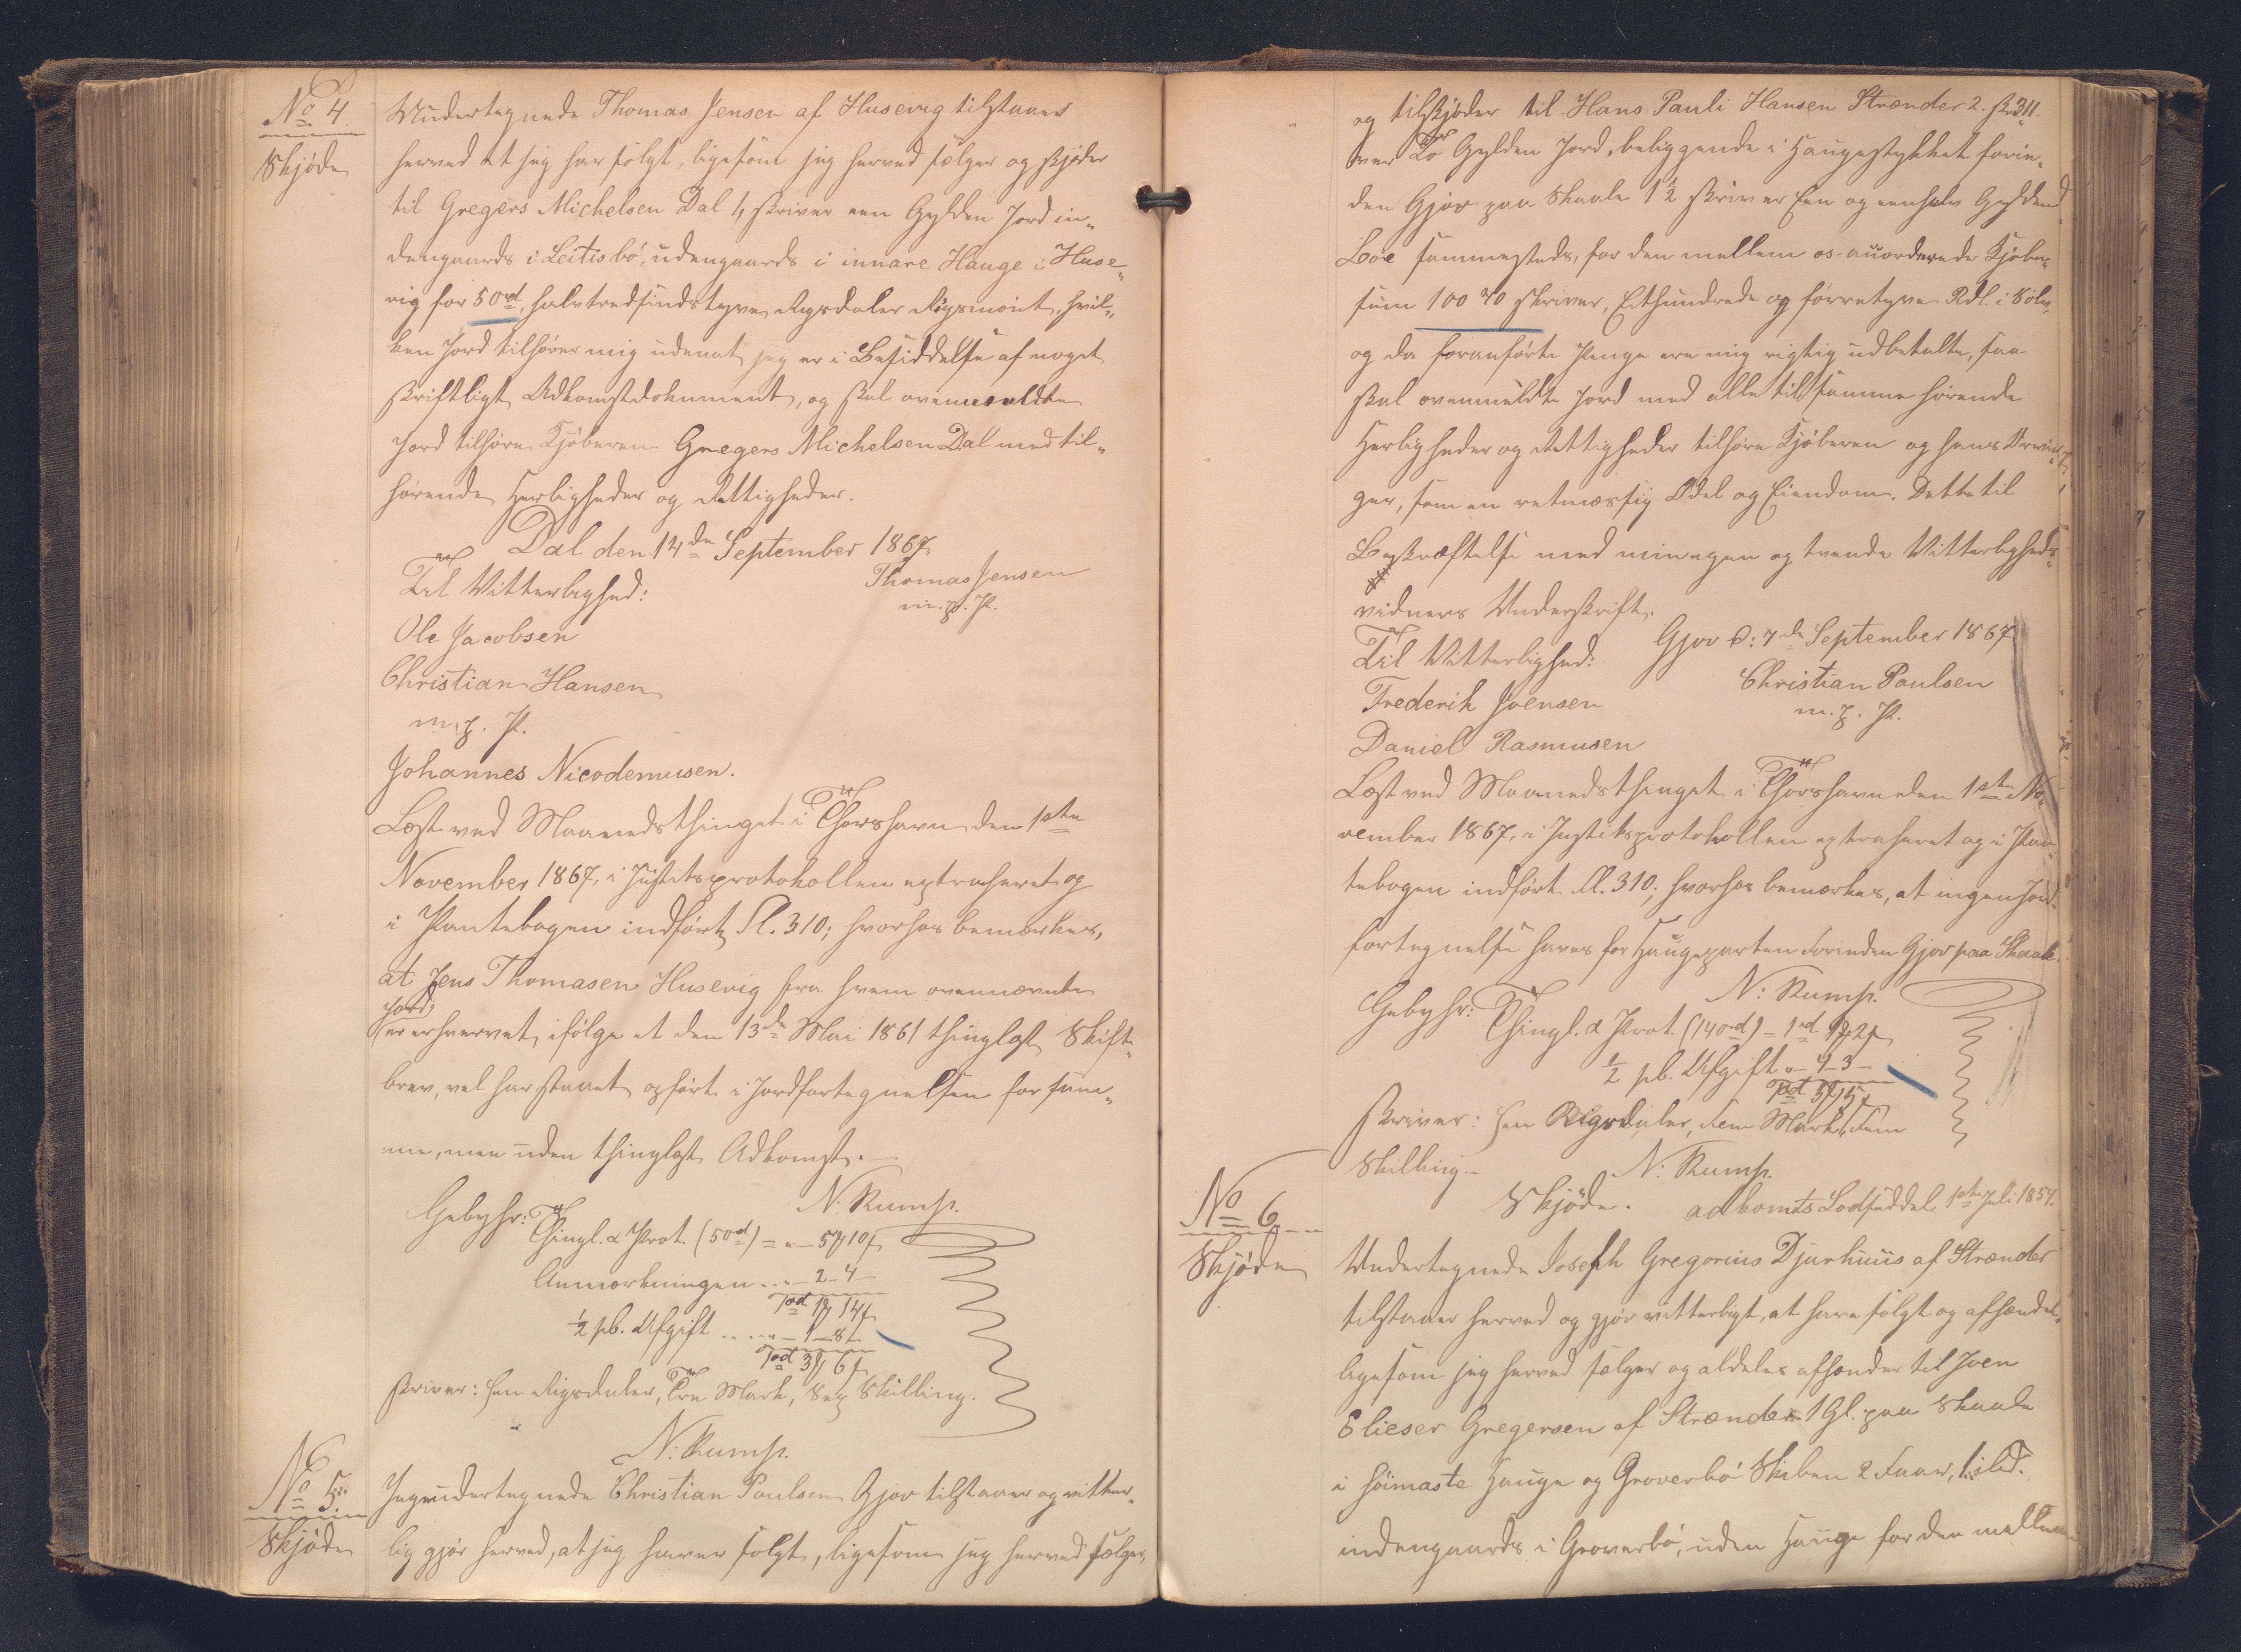 No 4.
Skjøde
Undertegnede Thomas Jensen af Husevig tilstaaer
herved at jeg har solgt, ligesom jeg herved sælger og skjøder
til Gregers Michelsen Dal 1, skriver een Gylden Jord in„
dengaards i Leitisbó, udengaards i innare Hauge i Huse„
vig for 50rd, halvtredsindstyve Rigsdaler Rigsmønt, hvil„
ken Jord tilhører mig uden at jeg er i Besiddelse af noget
skriftligt Adkomstdokument, og skal ovenmeldte
Jord tilhøre Kjøberen Gregers Michelsen Dal med til„
hørende Herligheder og Rettigheder.
Dal den 14de September 1867.
Til Vitterlighed:
Thomas Jensen
m. p. P.
Ole Jacobsen
Christian Hansen
m. p. P.
Johannes Nicodemusen.
Læst ved Maanedsthinget i Thorshavn den 1ste
November 1867, i Justitsprotokollen extraheret og
i Pantebogen indført Fl. 310; hvorhos bemærkes,
at Jens Thomasen Husevig fra hvem ovennævnte
Jord
er erhvervet, ifølge et den 13de Mai 1861 thinglæst Skift„
brev, vel har staaet opført i Jordfortegnelsen for sam„
me, men uden thinglæst Adkomst.
N: Rump.
Gebyhr: Thingl. & Prot. (50rd) = „ – 5 10
Anmærkningen .. „ – 2 – 4 –
1rd 1 14
½ pC. Afgift .... „ – 1 – 8 –
1rd 3 6
skriver: Een Rigsdaler, Tre Mark, Sex Skilling.
N: Rump.
No 5.
Skjøde
Jeg undertegnede Christian Poulsen Gjov tilstaaer og vitter„
lig gjør herved, at jeg haver solgt, ligesom jeg herved sælger,
311.
og tilskjøder til Hans Pauli Hansen Strænder 2. skri„
ver To Gylden Jord, beliggende i Haugestykket forin„
den Gjov paa Skaale 1½ skriver Een og eenhalv Gylden
Bøe sammesteds, for den mellem os accorderede Kjøbe„
sum 100 40 skriver, Eethundrede og førretyve Rdl. i Sølv,
og da foranførte Penge ere mig rigtig udbetalte, saa
skal ovenmeldte Jord med alle til samme hørende
Herligheder og Rettigheder tilhøre Kjøberen og hans Arvin„
ger, som en retmæssig Odel og Eiendom. Dette til
Bekræftelse med min egen og tvende Vitterligheds„
vidners Underskrift.
Gjov d: 7de September 1867.
Til Vitterlighed:
Christian Poulsen
m. p. P.
Frederik Joensen
Daniel Rasmusen
Læst ved Maanedsthinget i Thorshavn den 1ste No„
vember 1867, i Justitsprotokollen extraheret og i Pan„
tebogen indført Fl. 310; hvorhos bemærkes, at ingen Jord„
fortegnelse haves for Haugeparten forinden Gjov paa Skaale.
N: Rump.
Gebyhr: Thingl. & Prot. (140rd) = 1rd 1 2
½ pC. Afgift „ – 4 – 3 –
1rd 5 5
skriver: Een Rigsdaler, Fem Mark, Fem
Skilling.
N: Rump.
No 6
Skjøde
Skjøde. Adkomts Lodseddel 1ste Juli 1857.
Undertegnede Joseph Gregorius Djurhuus af Strænder
tilstaaer herved og gjør vitterligt, at have solgt og afhændet
ligesom jeg herved sælger og aldeles afhænder til Joen
Elieser Gregersen af Strænder 1 Gl. paa Skaale
i Heimaste Hauge og Groverbó Skiben 2 Faar,
indengaards i Groverbó, uden Hauge for den mellem